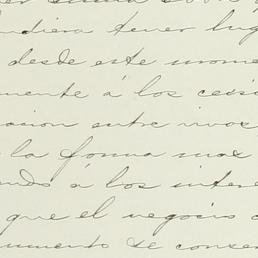 pudiera tener lug
desde este mome
mente á los cesio
nacion entre vivos
la forma mas
ando á los intere
que el negocio
cumento se conser